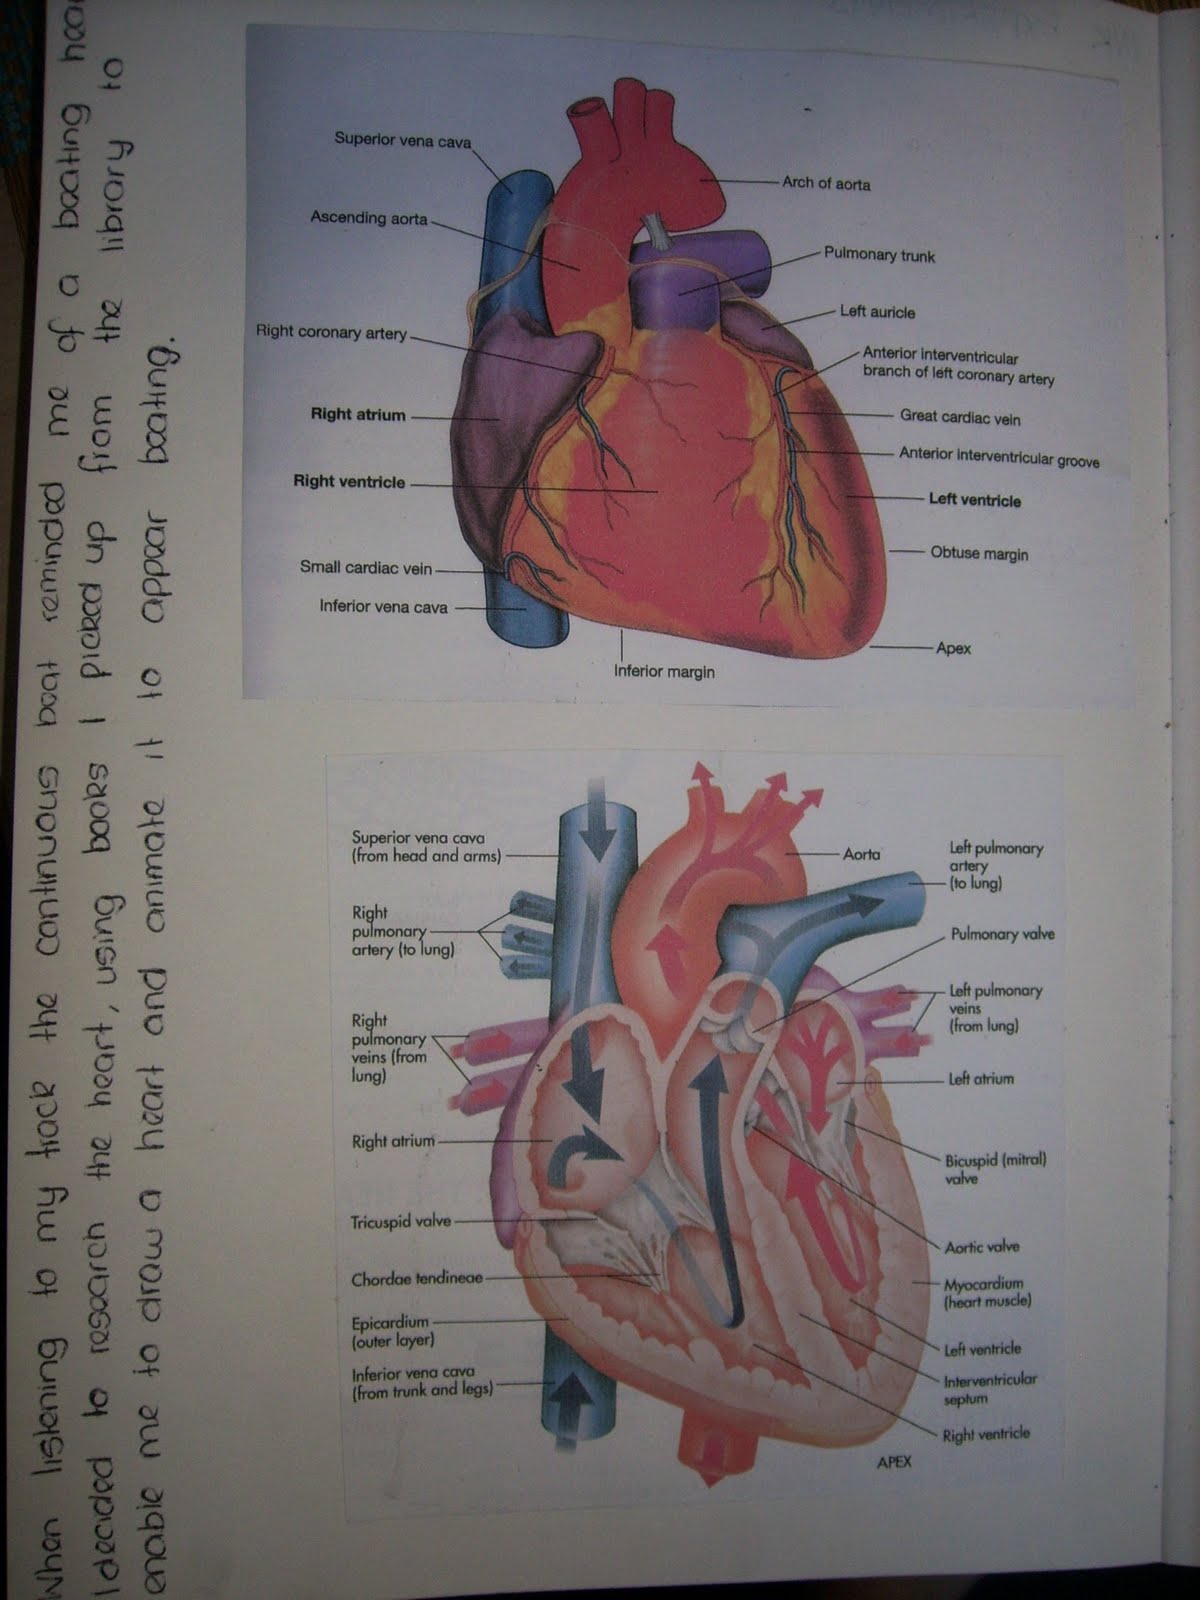 When listening to my track the continuous beat reminded me of a beating
I decided to research the heart, using books I picked up from the library to
enable me to draw a heart and animate it to appear beating.
Superior vena cava
Ascending aorta
Right coronary artery
Right atrium
Right ventricle
Small cardiac vein
Inferior vena cava
Inferior margin
Arch of aorta
Pulmonary trunk
Left auricle
Anterior interventricular
branch of left coronary artery
Great cardiac vein
Anterior interventricular groove
Left ventricle
Obtuse margin
Apex
Superior vena cava
(from head and arms)
Right
pulmonary
artery (to lung)
Right
pulmonary
veins (from
lung)
Right atrium
Tricuspid valve
Chordae tendineae
Epicardium
(outer layer)
Inferior vena cava
(from trunk and legs)
Aorta
Left pulmonary
artery
(to lung)
Pulmonary valve
Left pulmonary
veins
(from lung)
Left atrium
Bicuspid (mitral)
valve
Aortic valve
Myocardium
(heart muscle)
Left ventricle
Interventricular
septum
Right ventricle
APEX